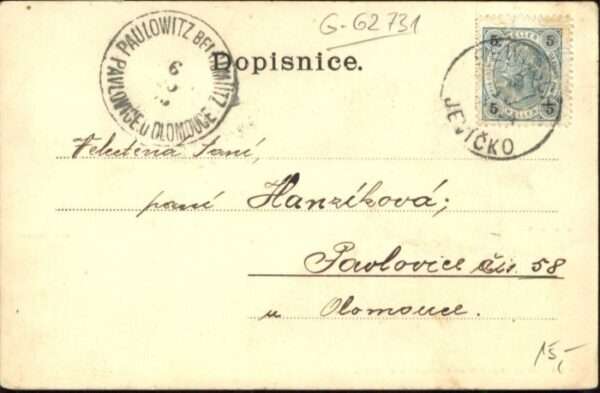 G-62731
PAULOWITZ BEI OLMÜTZ
PAVLOVICE U OLOMOUCE
6
Dopisnice.
5 HELLER 5
5 HELLER 5
JEVÍČKO
Velectěná Paní,
paní Hanzíková;
Pavlovice čís. 58
u Olomouce.
15,